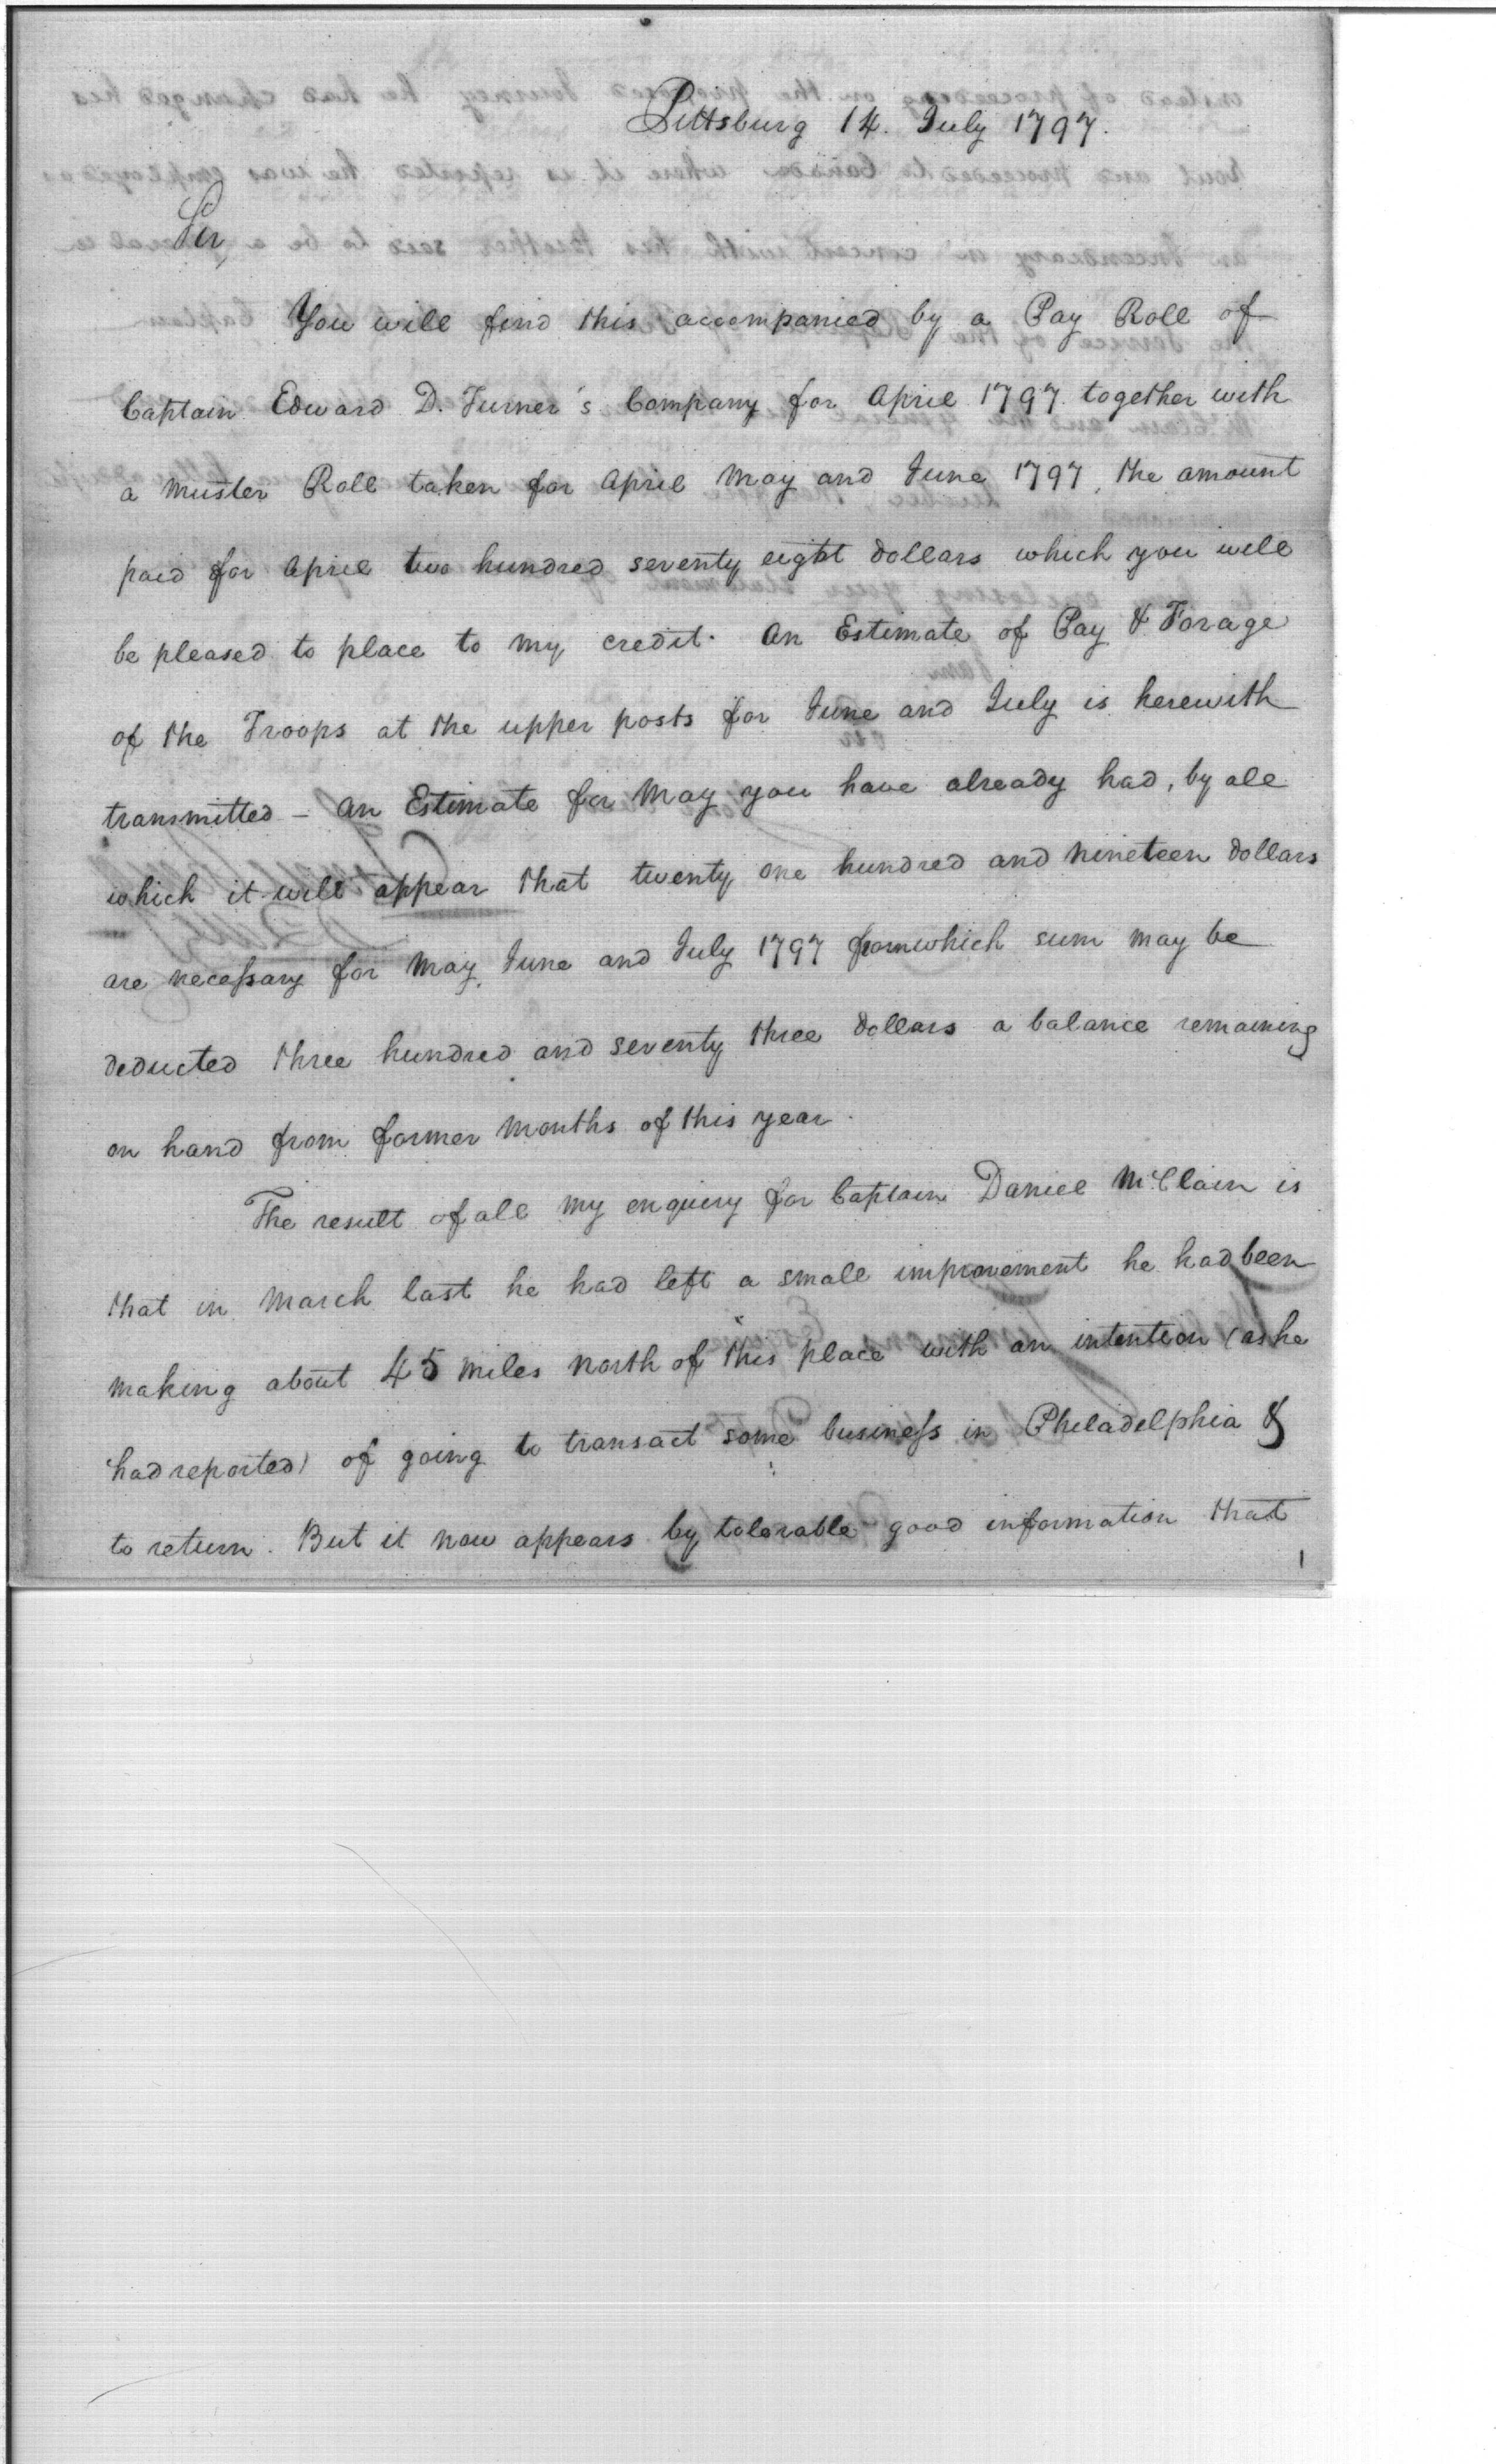 Pittsburg 14. July 1797.
Sir,
You will find this accompanied by a Pay Roll of
Captain Edward D. Turner's Company for April 1797 together with
a Muster Roll taken for April May and June 1797, the amount
paid for April two hundred seventy eight dollars which you will
be pleased to place to my credit. An Estimate of Pay & Forage
of the Troops at the upper posts for June and July is herewith
transmitted – An Estimate for May you have already had, by all
which it will appear that twenty one hundred and nineteen dollars
are necessary for May, June and July 1797 from which sum may be
deducted three hundred and seventy three dollars a balance remaining
on hand from former months of this year.
The result of all my enquiry for Captain Daniel McClain is
that in March last he had left a small improvement he had been
making about 45 miles north of this place with an intention (as he
had reported) of going to transact some business in Philadelphia &
to return. But it now appears by tolorable good information that
1